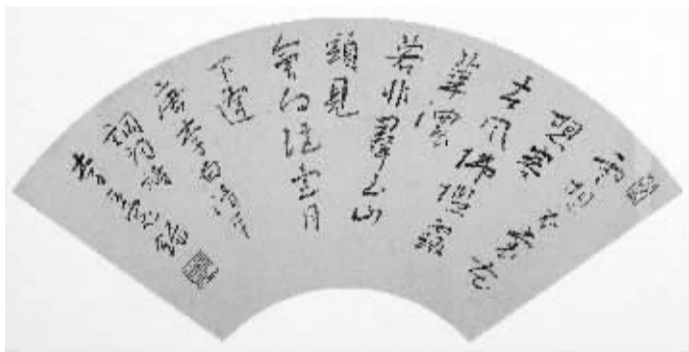 雲想衣裳花
想容
春風拂檻露
華濃
若非羣玉山
頭見
會向瑶臺月
下逢
唐李白清平
調詞
李